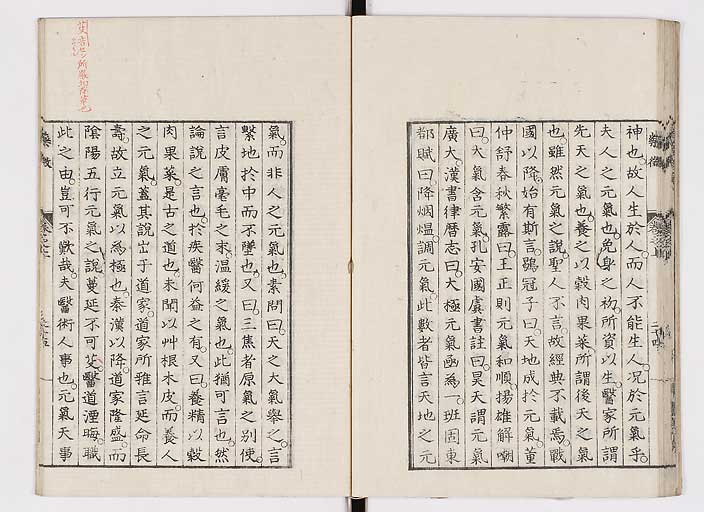 神也故人生於人而人不能生人況於元氣乎
夫人之元氣也免身之初所資以生醫家所謂
先天之氣也養之以穀肉果菜所謂後天之氣
也雖然元氣之說聖人不言故經典不載焉戰
國以降始有斯言鶡冠子曰天地成於元氣董
仲舒春秋繁露曰王正則元氣和順揚雄解嘲
曰大氣含元氣孔安國虞書註曰昊天謂元氣
廣大漢書律曆志曰大極元氣函為一班固東
都賦曰降烟熅調元氣此數者皆言天地之元
氣而非人之元氣也素問曰天之大氣舉之言
繫地於中而不墜也又曰三焦者原氣之別使
言皮膚毫毛之末溫緩之氣也此猶可言也然
論說之言也於疾醫何益之有又曰養精以穀
肉果菜是古之道也未聞以艸根木皮而養人
之元氣蓋其說出于道家道家所雅言延命長
壽故立元氣以為極也秦漢以降道家隆盛而
陰陽五行元氣之說蔓延不可艾醫道湮晦職
此之由豈可不歎哉夫醫術人事也元氣天事